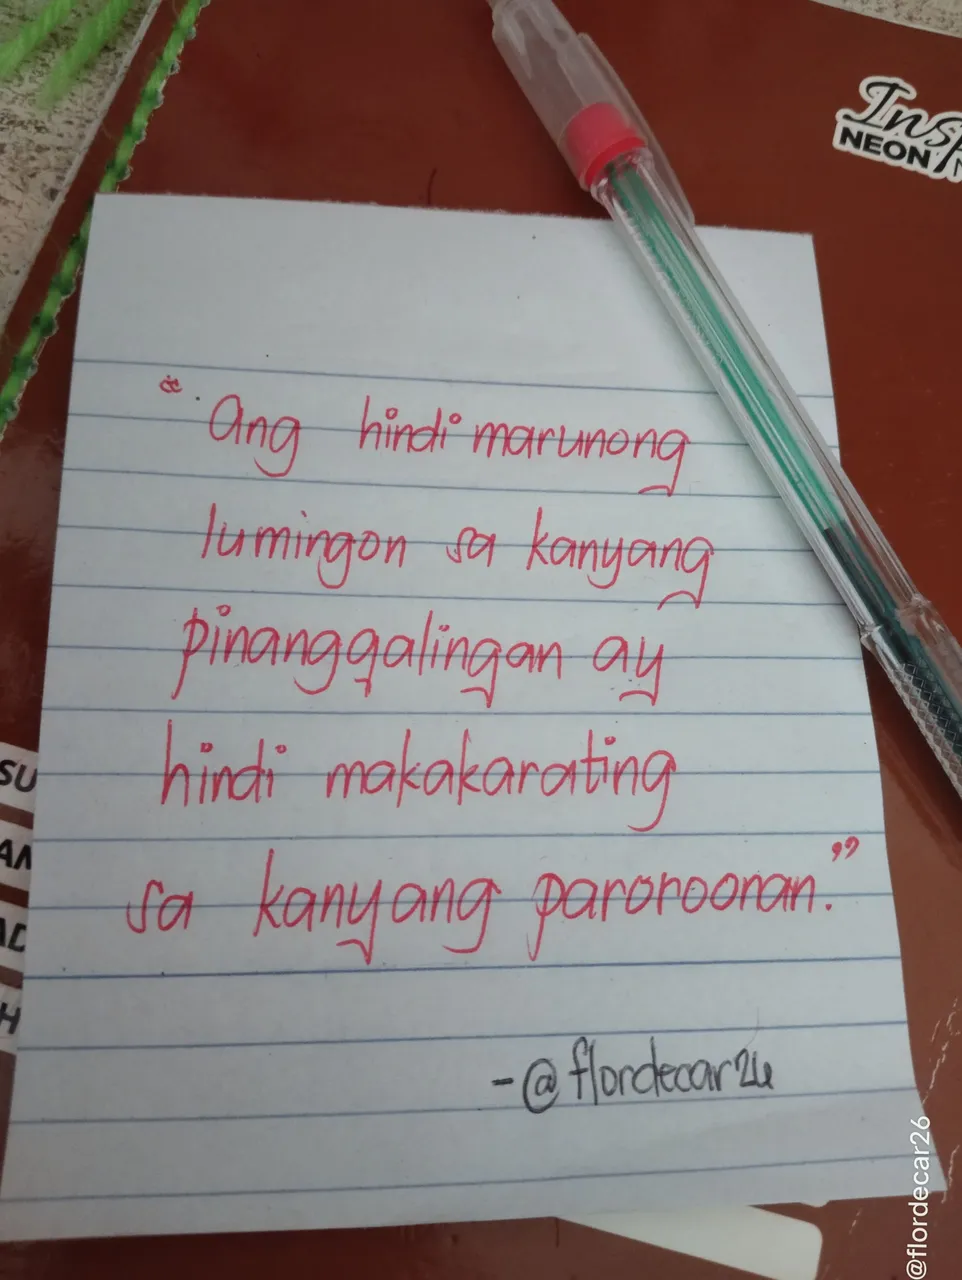 Insp
NEON N
" Ang hindi marunong
lumingon sa kanyang
pinanggalingan ay
hindi makakarating
sa kanyang paroroonan."
-@flordecar26
SU
AM
AD
H
@flordecar26